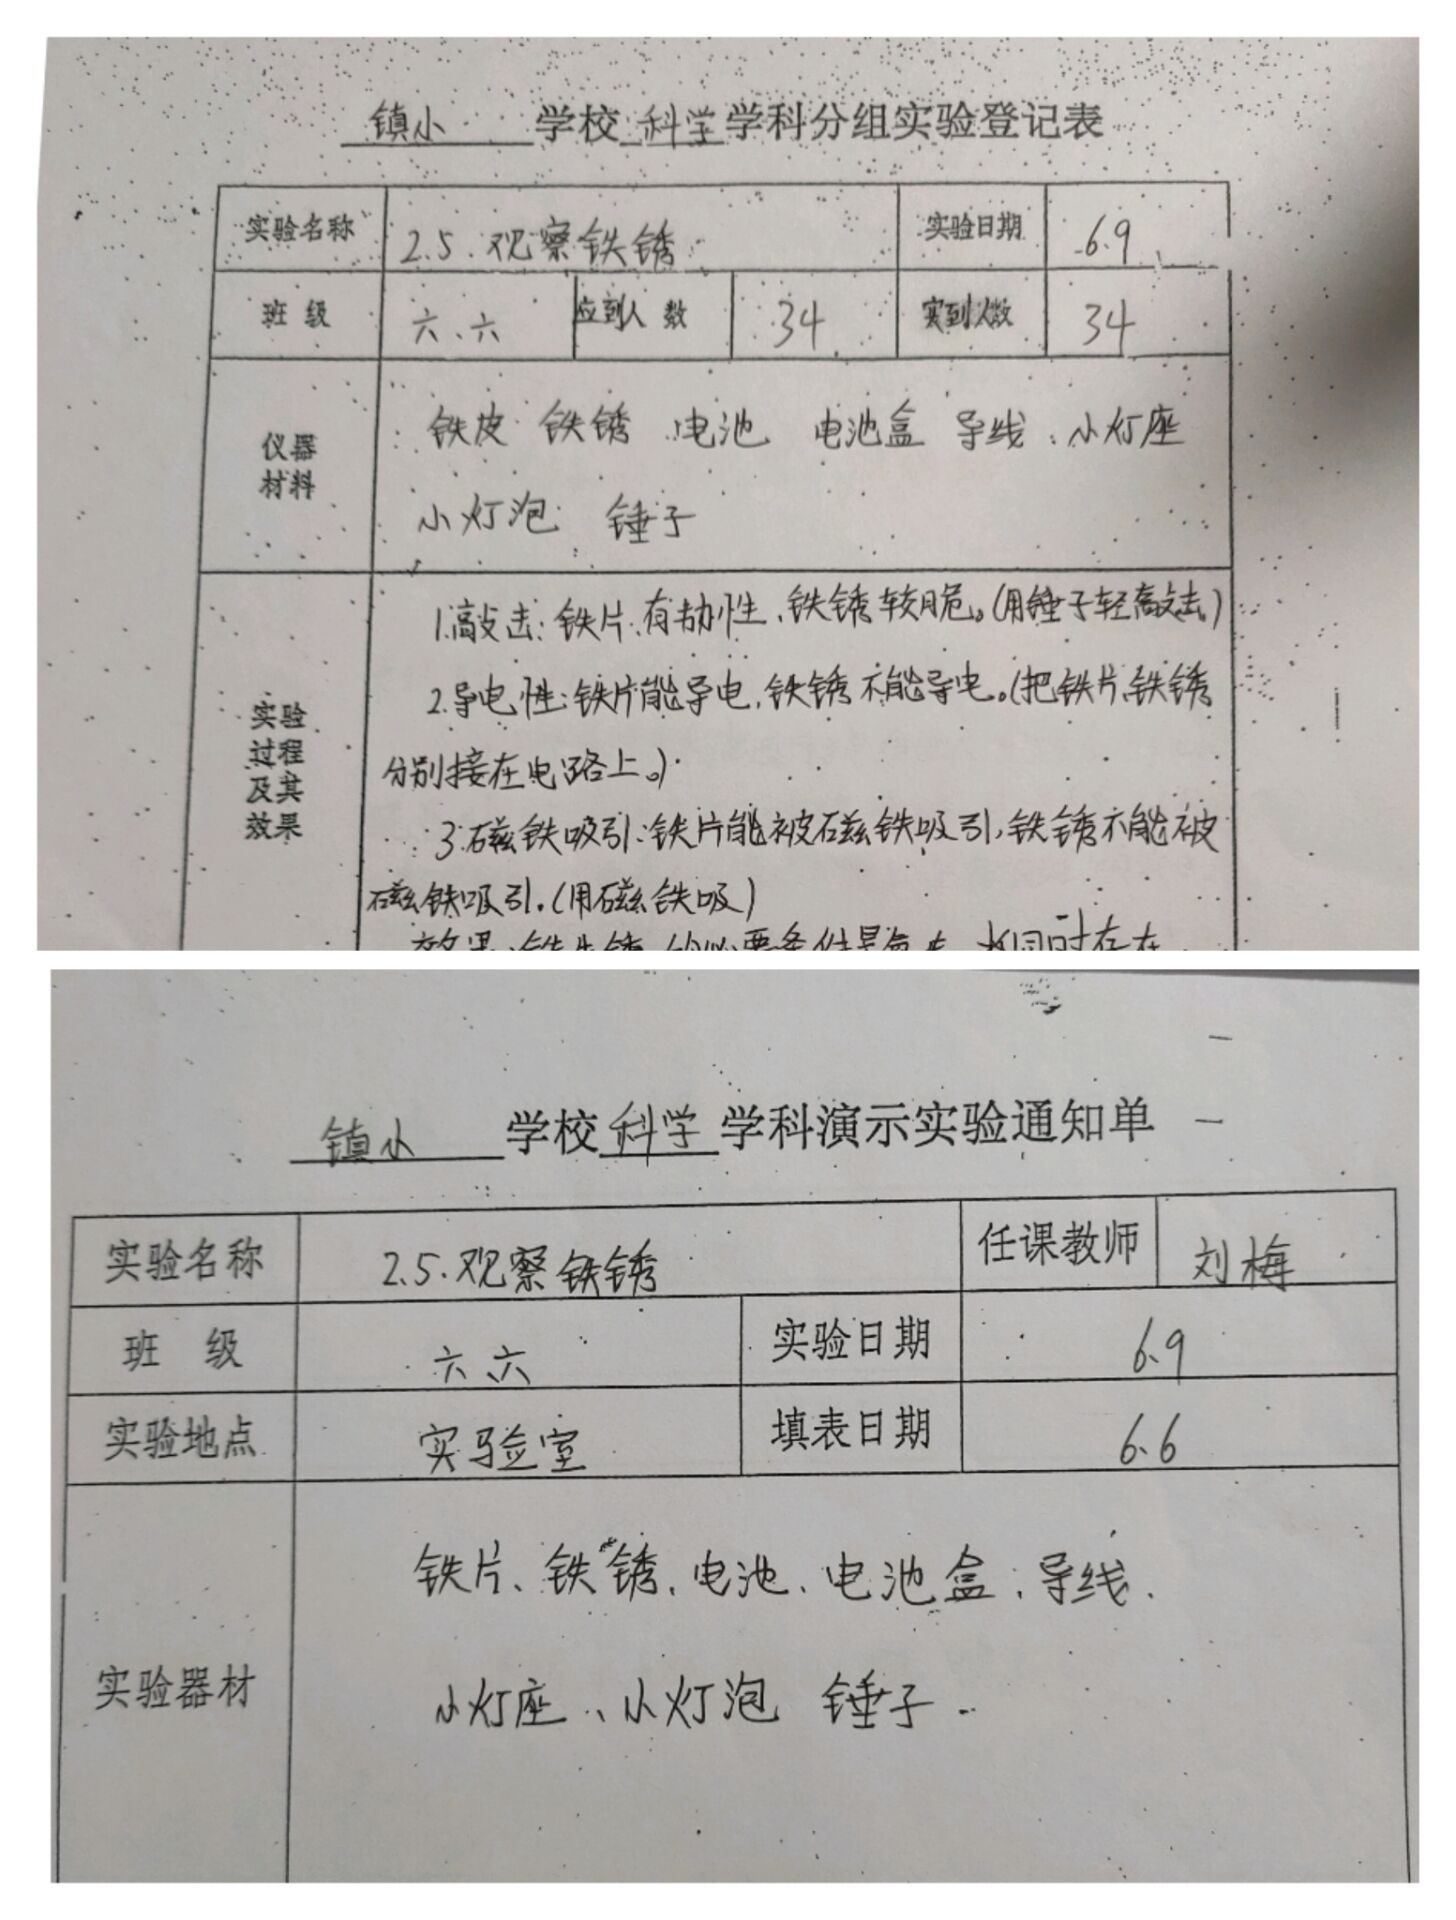 镇小 学校 科学 学科分组实验登记表
实验名称 2.5.观察铁锈 实验日期 6.9
班 级 六、六 应到人数 34 实到人数 34
仪器
材料
铁皮 铁锈 电池 电池盒 导线、小灯座
小灯泡 锤子
实验
过程
及其
效果
1.敲击:铁片.有韧性、铁锈较脆。(用锤子轻敲击。)
2.导电性:铁片能导电,铁锈不能导电。(把铁片、铁锈
分别接在电路上。)
3.磁铁吸引:铁片能被磁铁吸引,铁锈不能被
磁铁吸引.(用磁铁吸)
效果:铁生锈的必要条件是氧气、水同时存在
镇小 学校 科学 学科演示实验通知单
实验名称 2.5.观察铁锈 任课教师 刘梅
班 级 六、六 实验日期 6.9
实验地点 实验室 填表日期 6.6
实验器材
铁片、铁锈、电池、电池盒、导线、
小灯座、小灯泡 锤子.